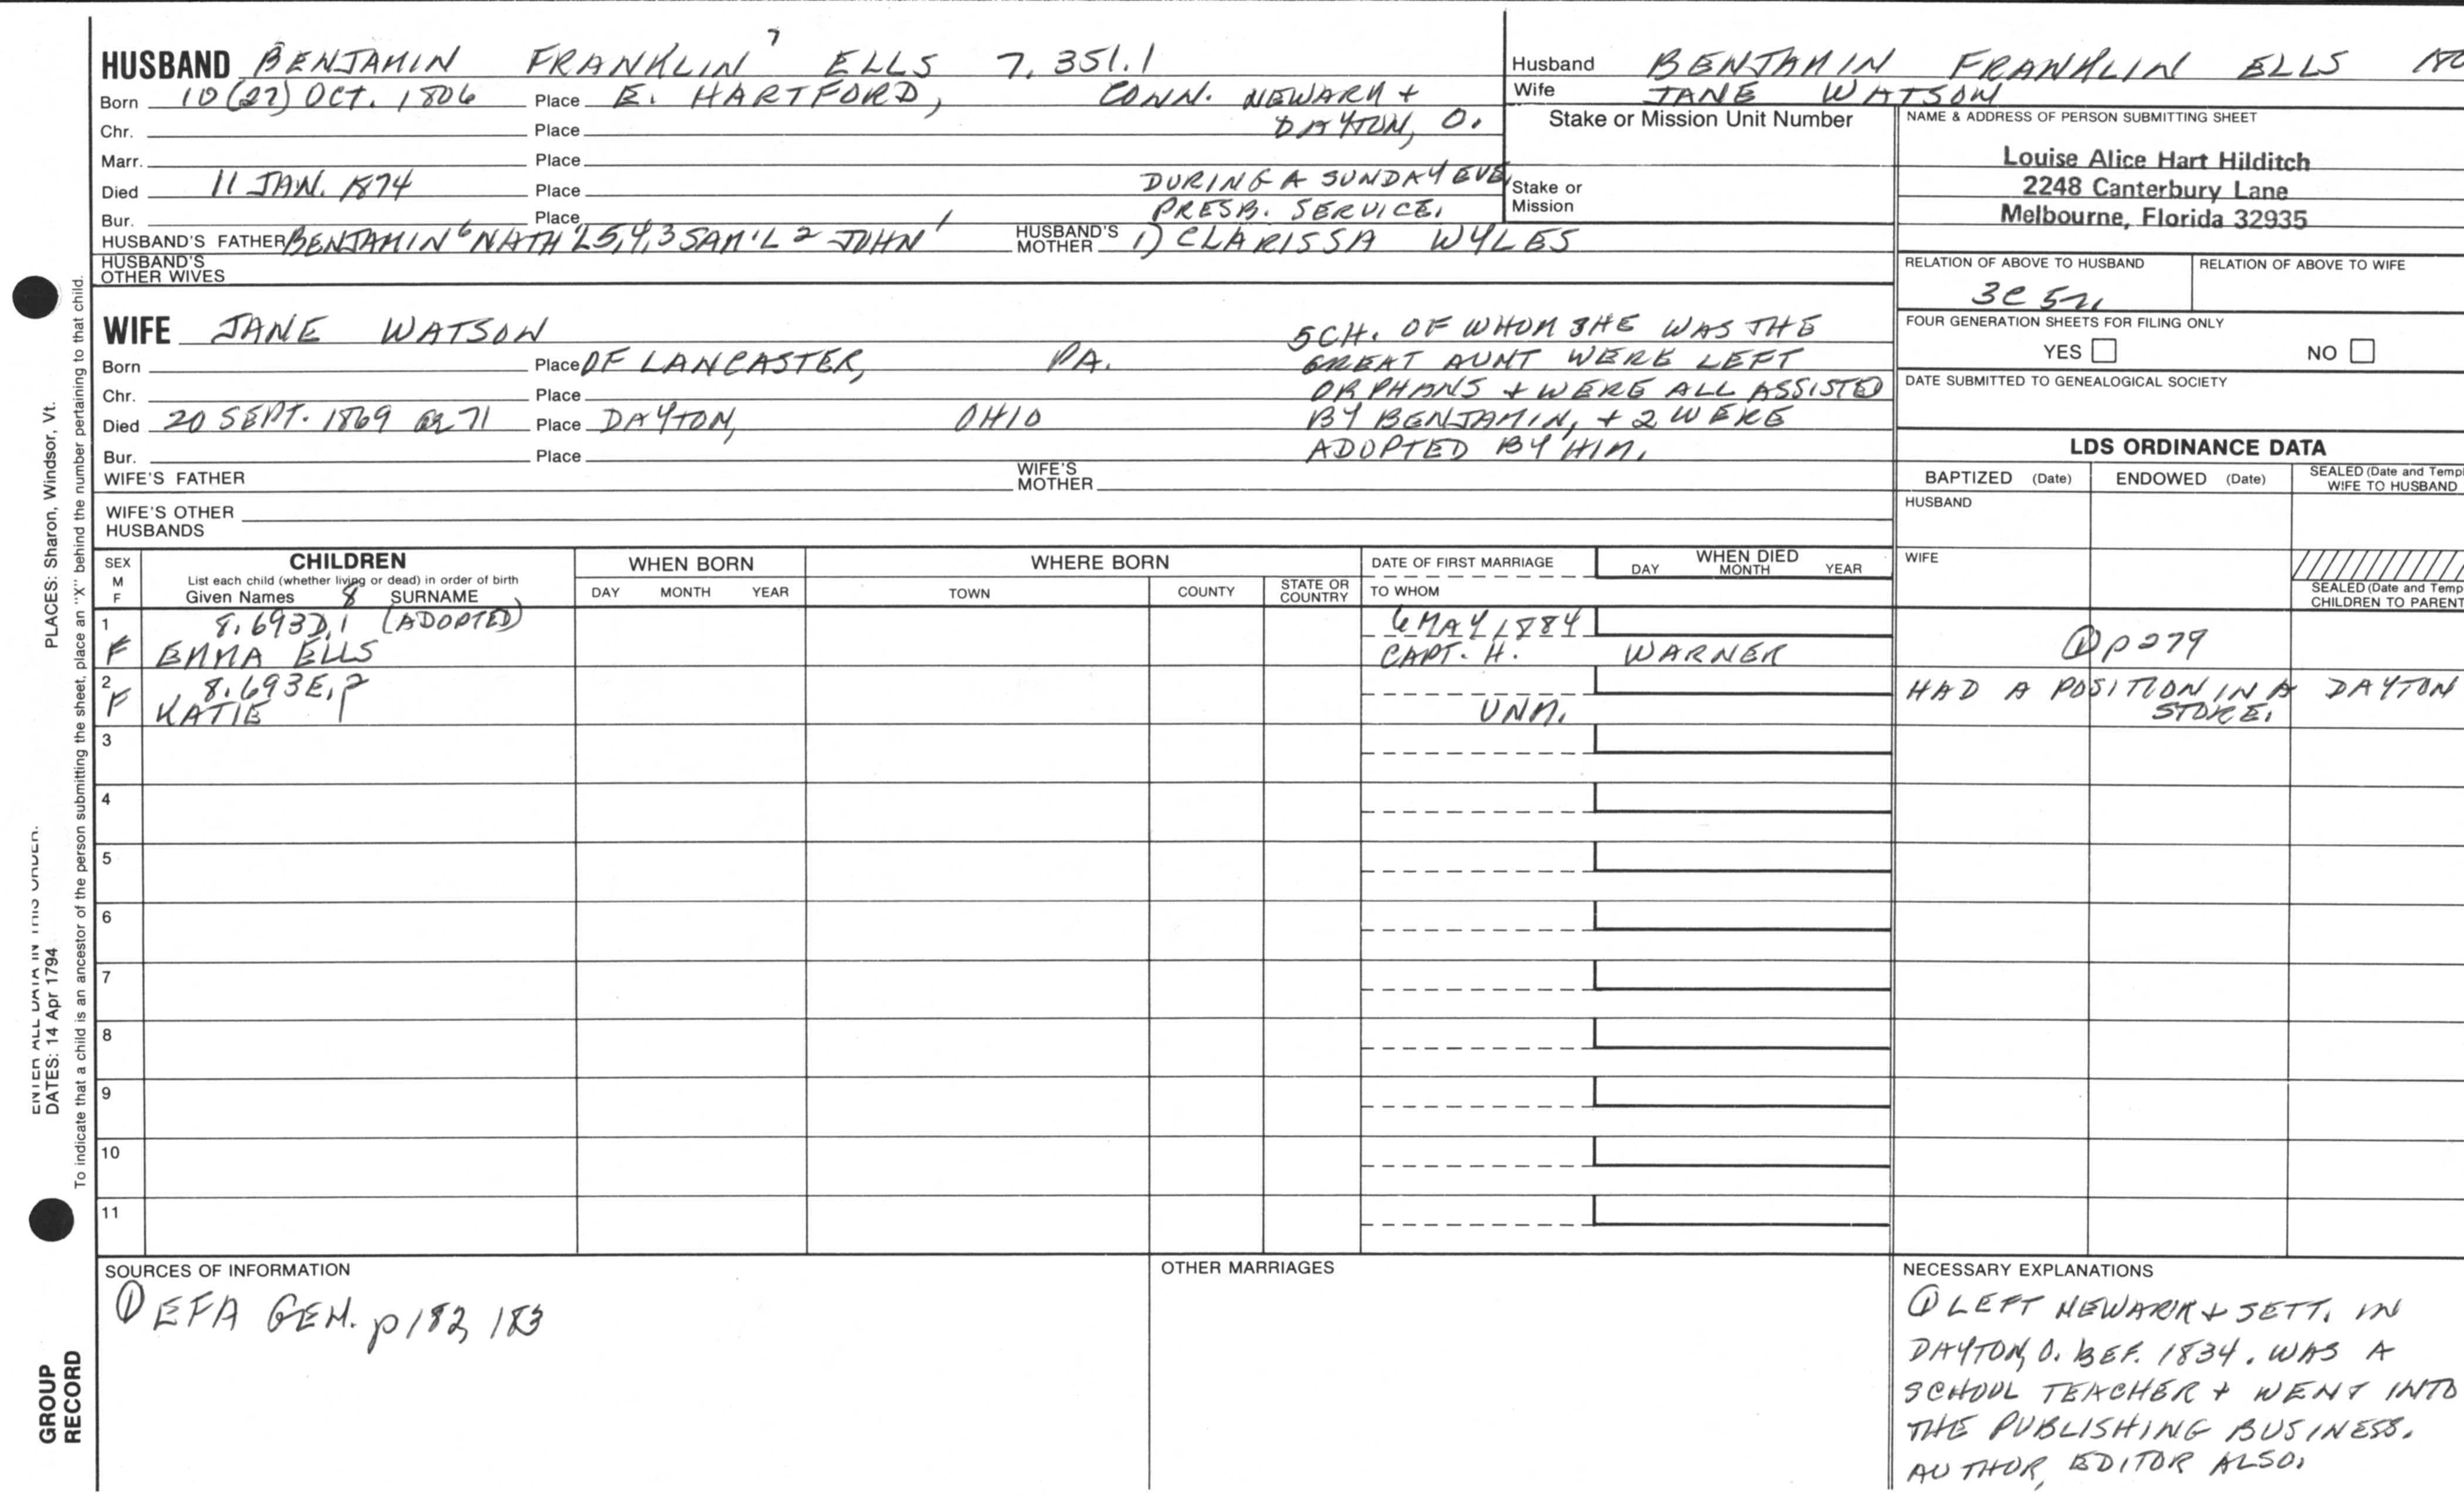 HUSBAND BENJAMIN FRANKLIN 7 ELLS 7.351.1
Born 10 (27) OCT. 1806 Place E. HARTFORD, CONN. NEWARK +
Chr. Place DAYTON, O.
Marr. Place
Died 11 JAN. 1874 Place DURING A SUNDAY EVE.
Bur. Place PRESB. SERVICE.
HUSBAND'S FATHER BENJAMIN 6 NATH'L 5,4,3 SAM'L 2 JOHN 1 HUSBAND'S MOTHER 1) CLARISSA WYLES
HUSBAND'S OTHER WIVES
Husband BENJAMIN FRANKLIN ELLS
Wife JANE WATSON
Stake or Mission Unit Number
Stake or Mission
NAME & ADDRESS OF PERSON SUBMITTING SHEET
Louise Alice Hart Hilditch
2248 Canterbury Lane
Melbourne, Florida 32935
RELATION OF ABOVE TO HUSBAND RELATION OF ABOVE TO WIFE
3C 5R
FOUR GENERATION SHEETS FOR FILING ONLY
YES NO
DATE SUBMITTED TO GENEALOGICAL SOCIETY
WIFE JANE WATSON
Born Place OF LANCASTER, PA.
Chr. Place
Died 20 SEPT. 1869 ae 71 Place DAYTON, OHIO
Bur. Place
5 CH. OF WHOM SHE WAS THE
GREAT AUNT WERE LEFT
ORPHANS + WERE ALL ASSISTED
BY BENJAMIN, + 2 WERE
ADOPTED BY HIM.
WIFE'S FATHER WIFE'S MOTHER
WIFE'S OTHER HUSBANDS
LDS ORDINANCE DATA
BAPTIZED (Date) ENDOWED (Date) SEALED (Date and Templ
WIFE TO HUSBAND
HUSBAND
WIFE
SEALED (Date and Templ
CHILDREN TO PARENT
SEX
M
F
CHILDREN
List each child (whether living or dead) in order of birth
Given Names 8 SURNAME
WHEN BORN
DAY MONTH YEAR
WHERE BORN
TOWN COUNTY STATE OR COUNTRY
DATE OF FIRST MARRIAGE
TO WHOM
WHEN DIED
DAY MONTH YEAR
1 8.693D.1 (ADOPTED) 6 MAY 1884
F EMMA ELLS CAPT. H. WARNER ① p 279
2 8.693E.? HAD A POSITION IN A DAYTON
F KATIE UNM. STORE.
3
4
5
6
7
8
9
10
11
SOURCES OF INFORMATION
① EFA GEN. p 182, 183
OTHER MARRIAGES
NECESSARY EXPLANATIONS
① LEFT NEWARK + SETT. IN
DAYTON, O. BEF. 1834. WAS A
SCHOOL TEACHER + WENT INTO
THE PUBLISHING BUSINESS.
AUTHOR, EDITOR ALSO.
ENTER ALL DATA IN THIS ORDER.
DATES: 14 Apr 1794 PLACES: Sharon, Windsor, Vt.
To indicate that a child is an ancestor of the person submitting the sheet, place an "X" behind the number pertaining to that child.
GROUP
RECORD